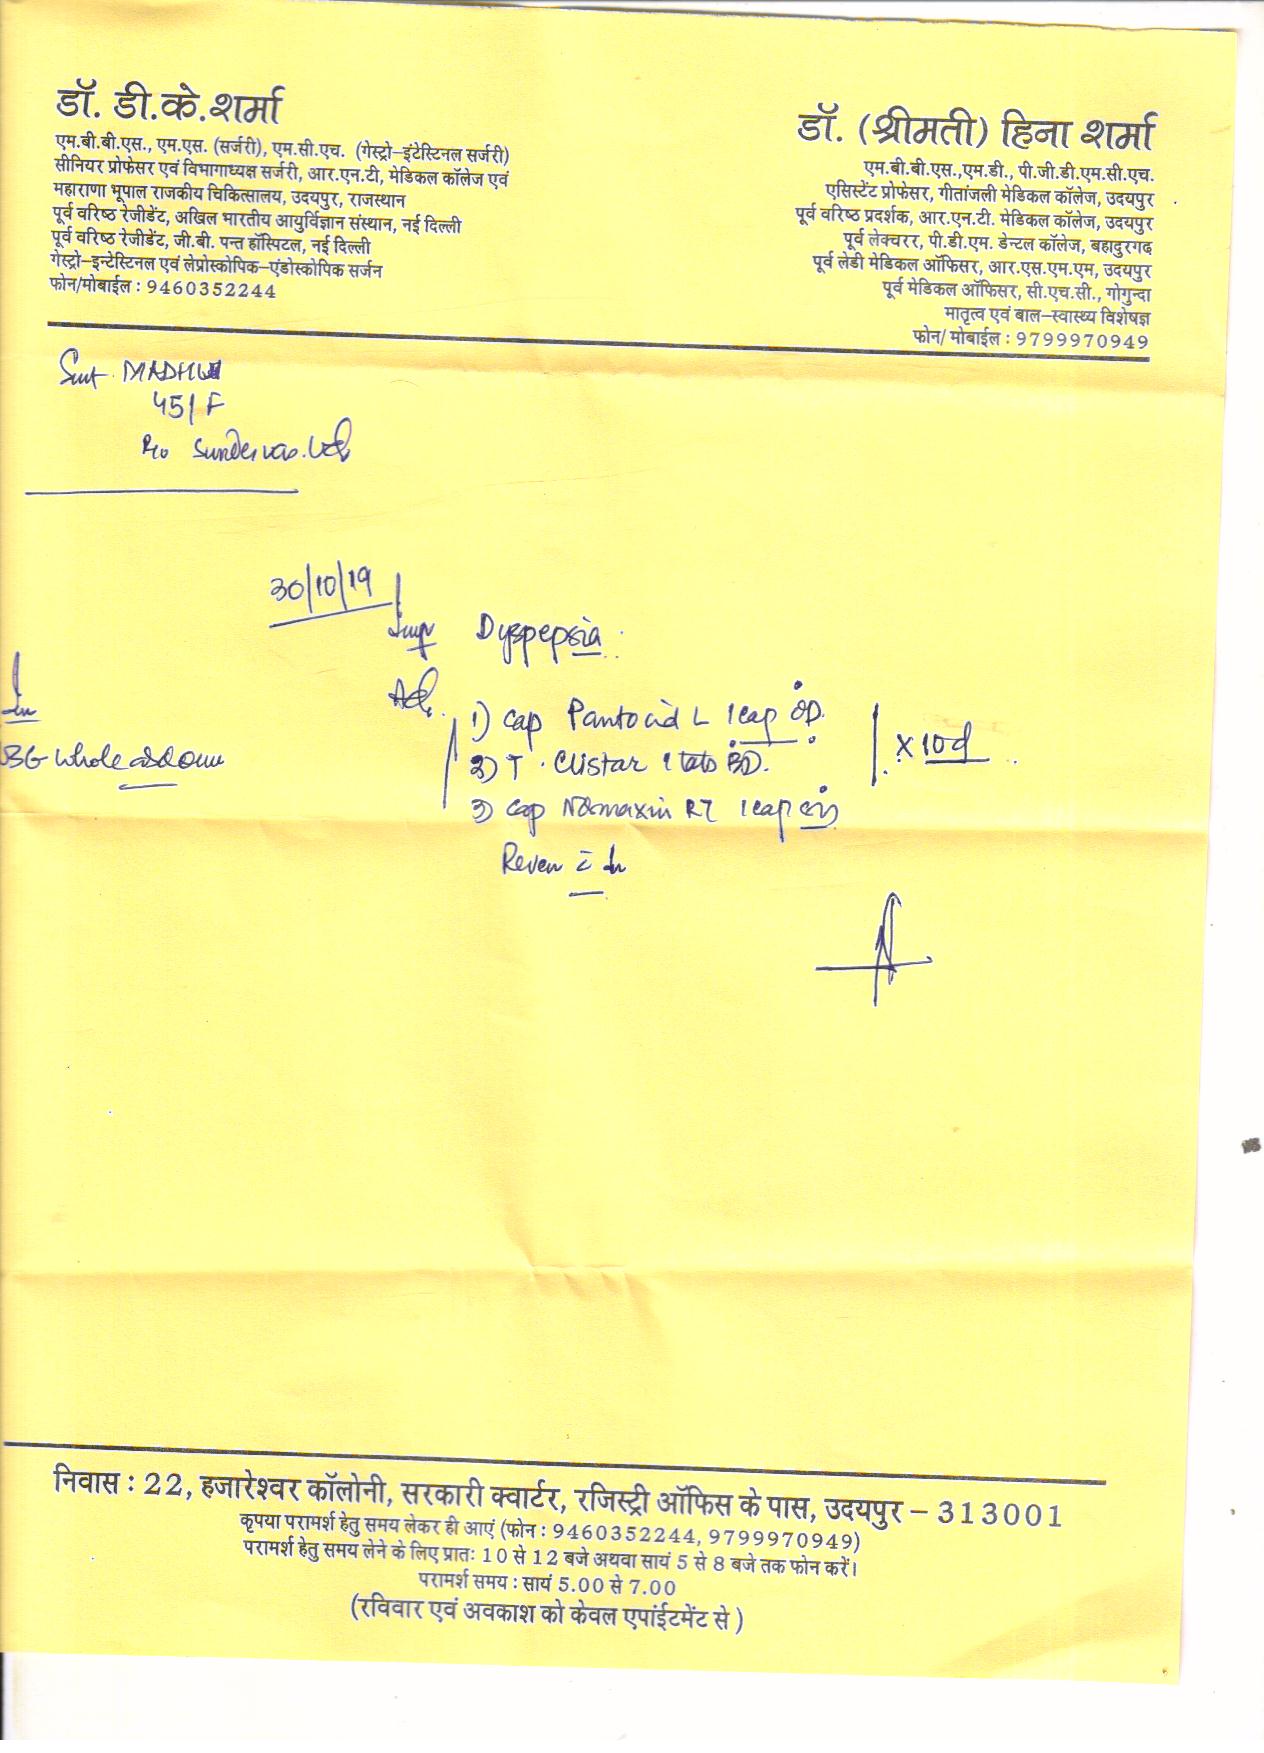 डॉ. डी.के.शर्मा
एम.बी.बी.एस., एम.एस. (सर्जरी), एम.सी.एच. (गेस्ट्रो-इंटेस्टिनल सर्जरी)
सीनियर प्रोफेसर एवं विभागाध्यक्ष सर्जरी, आर.एन.टी, मेडिकल कॉलेज एवं
महाराणा भूपाल राजकीय चिकित्सालय, उदयपुर, राजस्थान
पूर्व वरिष्ठ रेजीडेंट, अखिल भारतीय आयुर्विज्ञान संस्थान, नई दिल्ली
पूर्व वरिष्ठ रेजीडेंट, जी.बी. पन्त हॉस्पिटल, नई दिल्ली
गेस्ट्रो-इन्टेस्टिनल एवं लेप्रोस्कोपिक-एंडोस्कोपिक सर्जन
फोन/मोबाईल : 9460352244
डॉ. (श्रीमती) हिना शर्मा
एम.बी.बी.एस.,एम.डी., पी.जी.डी.एम.सी.एच.
एसिस्टेंट प्रोफेसर, गीतांजली मेडिकल कॉलेज, उदयपुर
पूर्व वरिष्ठ प्रदर्शक, आर.एन.टी. मेडिकल कॉलेज, उदयपुर
पूर्व लेक्चरर, पी.डी.एम. डेन्टल कॉलेज, बहादुरगढ
पूर्व लेडी मेडिकल ऑफिसर, आर.एस.एम.एम, उदयपुर
पूर्व मेडिकल ऑफिसर, सी.एच.सी., गोगुन्दा
मातृत्व एवं बाल-स्वास्थ्य विशेषज्ञ
फोन/ मोबाईल : 9799970949
Smt. MADHU
45/F
R/o
30/10/19
Imp Dyspepsia
Adv.
1) Cap Pantocid L 1cap OD.
2) T. Clistar 1 tab BD.
x 10d
3) Cap Normaxin RT 1cap
whole abdomen
निवास : 22, हजारेश्वर कॉलोनी, सरकारी क्वार्टर, रजिस्ट्री ऑफिस के पास, उदयपुर – 313001
कृपया परामर्श हेतु समय लेकर ही आएं (फोन : 9460352244, 9799970949)
परामर्श हेतु समय लेने के लिए प्रातः 10 से 12 बजे अथवा सायं 5 से 8 बजे तक फोन करें।
परामर्श समय : सायं 5.00 से 7.00
(रविवार एवं अवकाश को केवल एपांईटमेंट से )